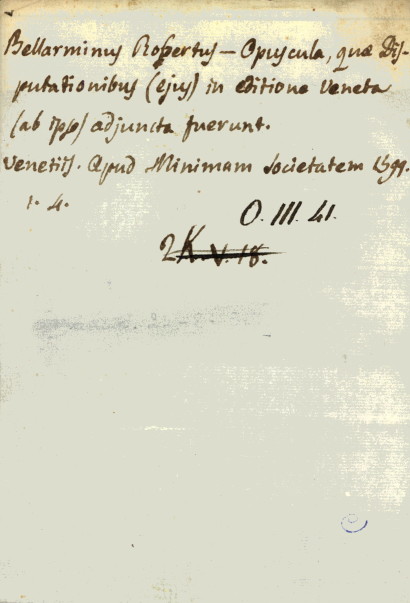 Bellarminus Robertus — Opuscula, quæ Dis-
putationibus (ejus) in editione Veneta
(ab ipso) adjuncta fuerunt.
Venetiis. Apud Minimam Societatem 1599.
1. 4.
O. III. 41.
2K. V. 18.